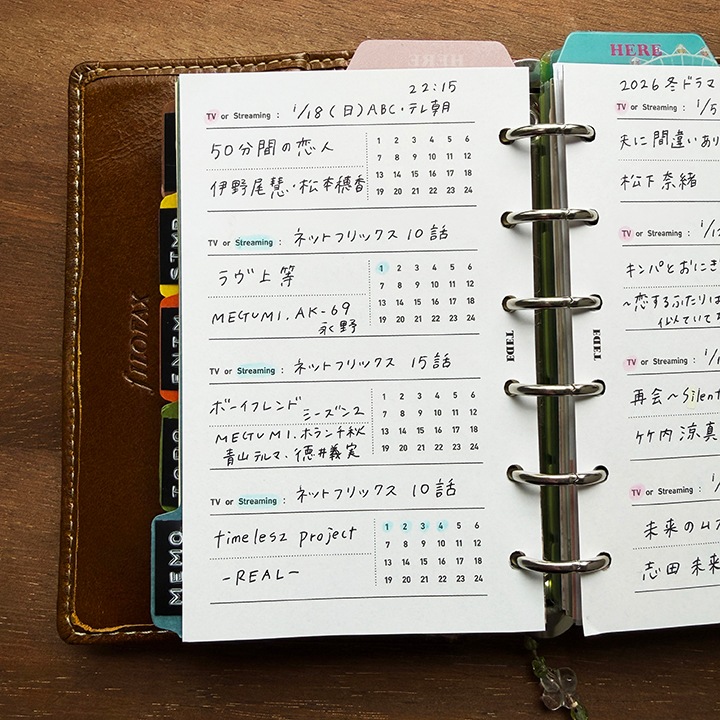 HERE
22:15
TV or Streaming : 1/18(日)ABC・テレ朝
50分間の恋人
1 2 3 4 5 6
7 8 9 10 11 12
13 14 15 16 17 18
19 20 21 22 23 24
伊野尾慧・松本穂香
TV or Streaming : ネットフリックス 10話
ラヴ上等
1 2 3 4 5 6
7 8 9 10 11 12
13 14 15 16 17 18
19 20 21 22 23 24
MEGUMI. AK-69
永野
TV or Streaming : ネットフリックス 15話
ボーイフレンド シーズン2
1 2 3 4 5 6
7 8 9 10 11 12
13 14 15 16 17 18
19 20 21 22 23 24
MEGUMI. ホランチ秋
青山テルマ・徳井義実
TV or Streaming : ネットフリックス 10話
timelesz project
1 2 3 4 5 6
7 8 9 10 11 12
13 14 15 16 17 18
19 20 21 22 23 24
-REAL-
HERE
2026冬ドラマ
TV or Streaming : 1/5
夫に間違いあり
松下奈緒
TV or Streaming : 1/1
キンパとおにぎ
~恋するふたりは
似ていて
TV or Streaming : 1/
再会~Silent
竹内涼真
TV or Streaming : 1/
未来のム
志田未来
TODO
MEMO